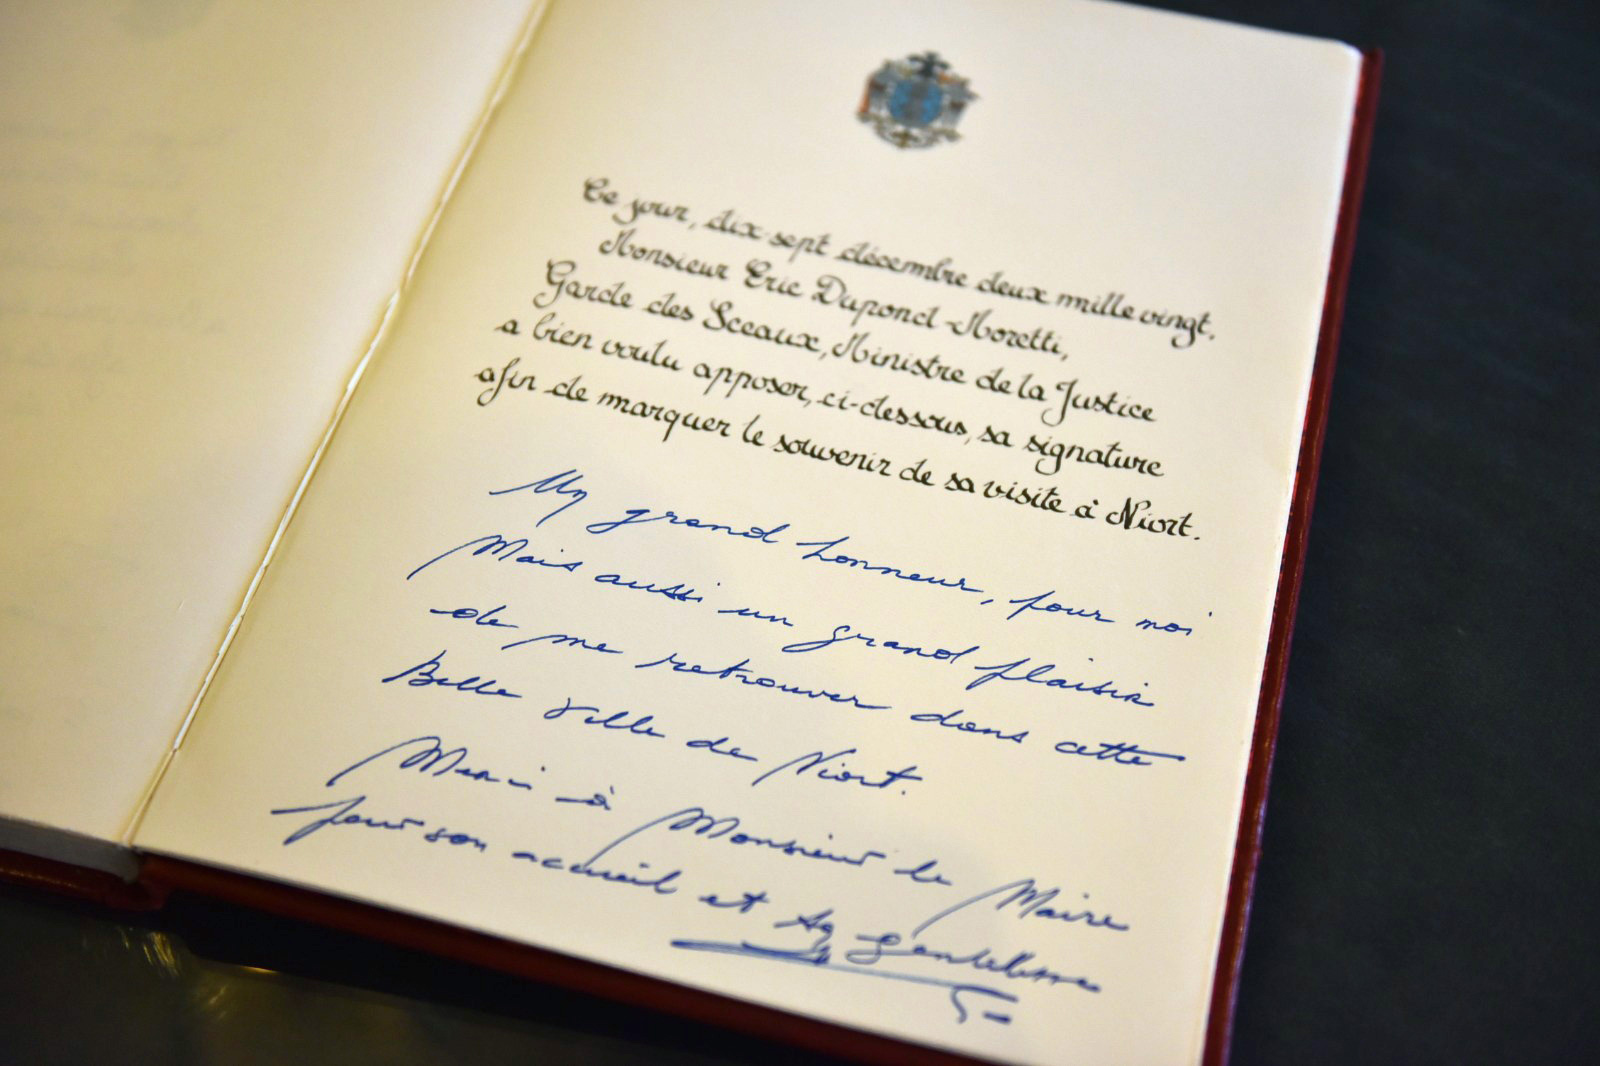 Ce jour, dix sept décembre deux mille vingt.
Monsieur Eric Dupond-Moretti,
Garde des Sceaux, Ministre de la Justice
a bien voulu apposer, ci-dessous, sa signature
afin de marquer le souvenir de sa visite à Niort.
Un grand honneur, pour moi
Mais aussi un grand plaisir
de me retrouver dans cette
Belle ville de Niort.
Merci à Monsieur le Maire
pour son accueil et sa gentillesse